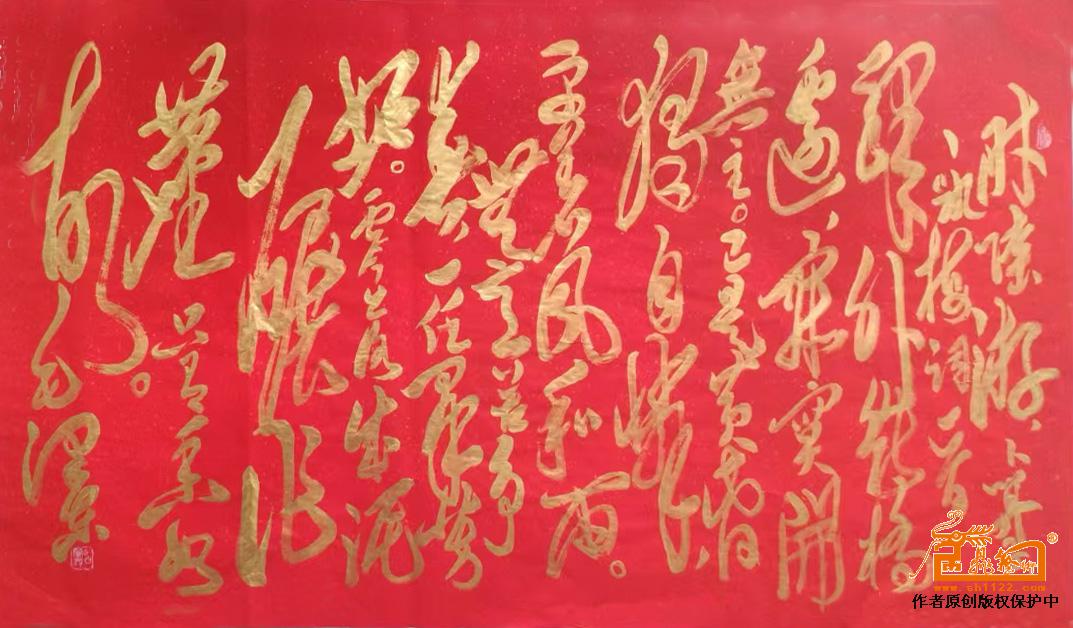 陆游
咏梅词一首
驛外断桥
邊、寂寞開
無主。已是黄昏
獨自愁
更著風和雨。
無意苦争
春,一任群芳
妒。零落成泥
碾作
塵只有香如
故。毛澤東
作者原创版权保护中
www.sh1122.com